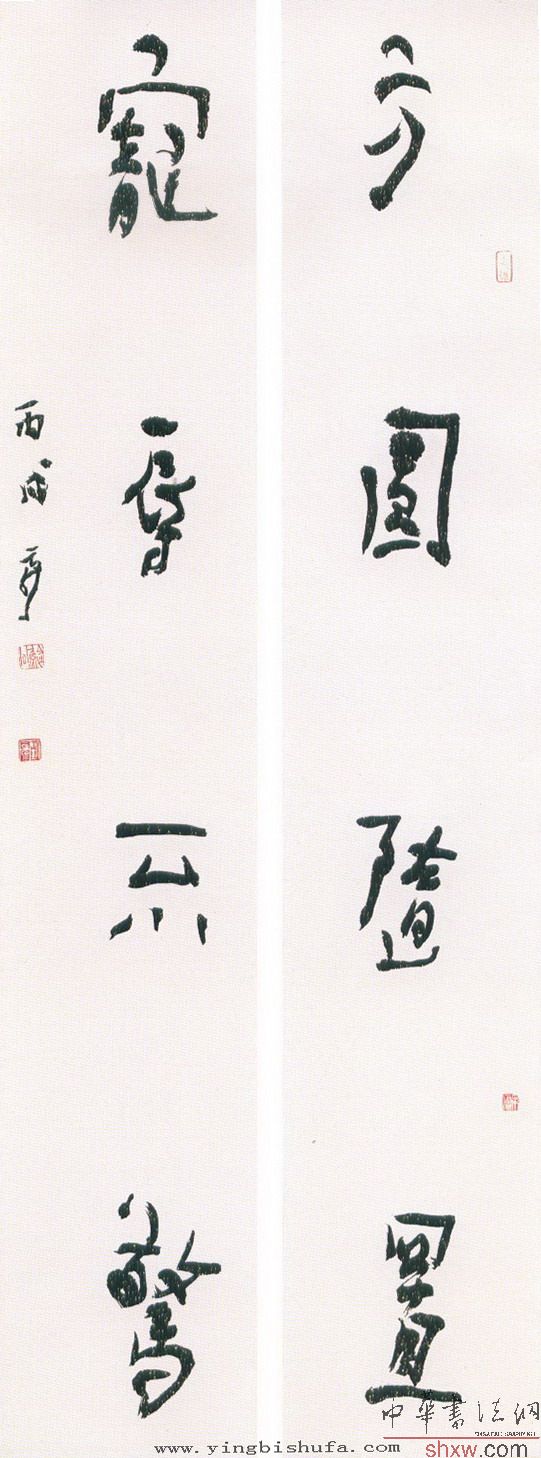 方圓隨置
寵辱不驚
丙戌
中華書法網
shxw.com
www.yingbishufa.com